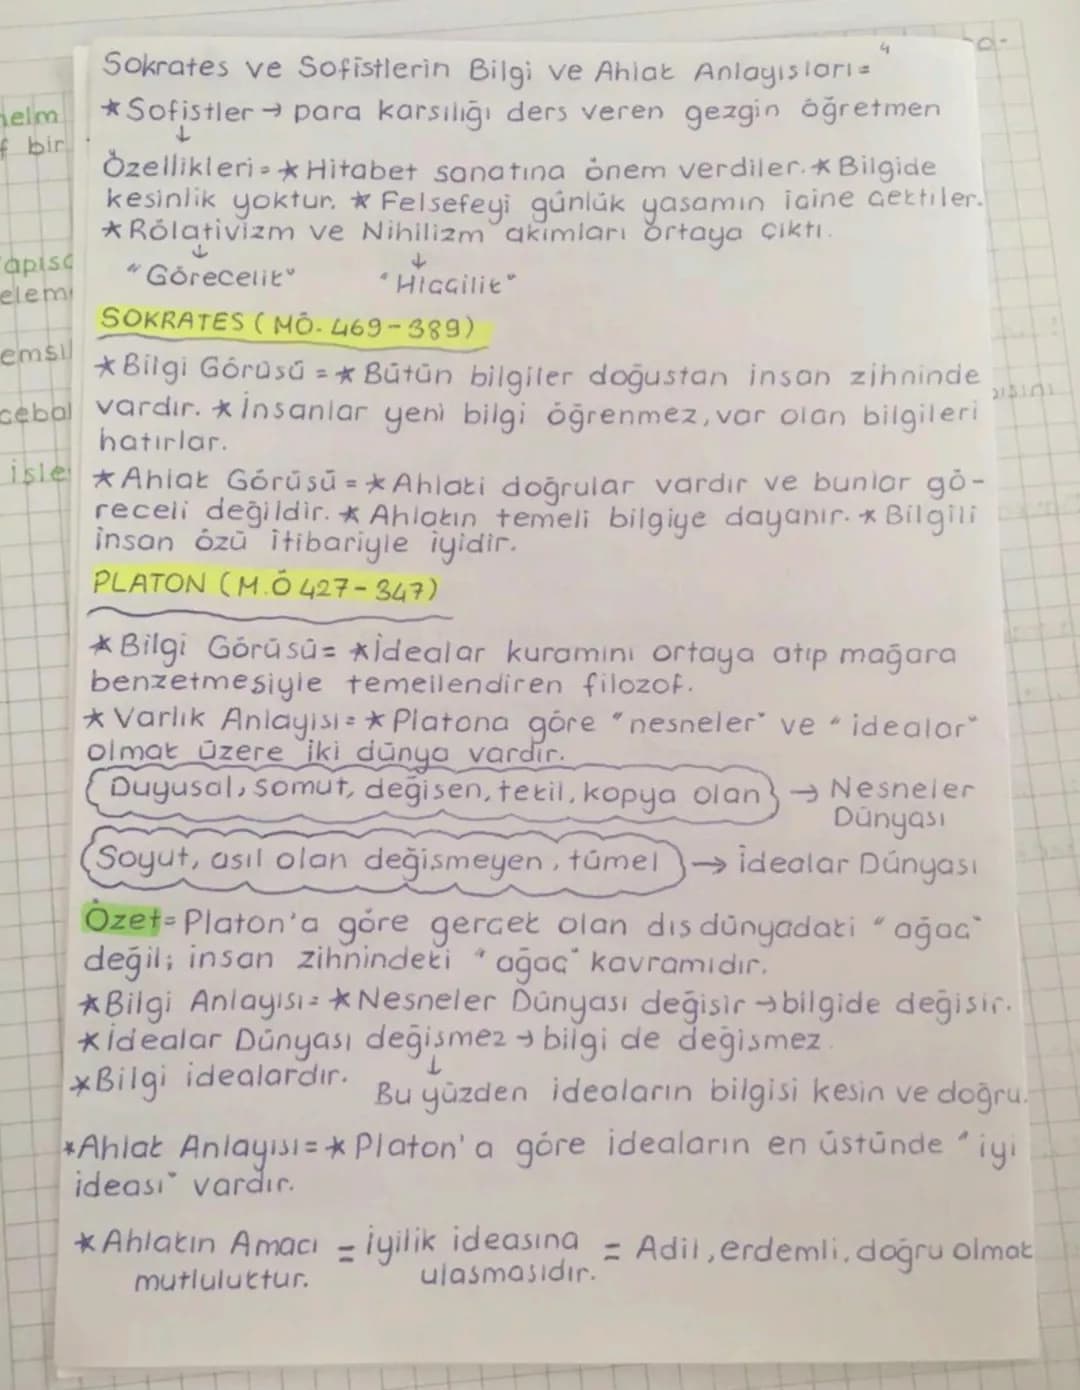 4
Sokrates ve Sofistlerin Bilgi ve Ahlak Anlayısları=
*Sofistler → para karsılığı ders veren gezgin öğretmen
↓
Özellikleri=*Hitabet sanatına önem verdiler.*Bilgide
kesinlik yoktur. *Felsefeyi günlük yasamın içine çektiler.
*Rölativizm ve Nihilizm akımları ortaya çıktı.
↓ ↓
"Görecelik" "Hiççilik"
SOKRATES (MÖ. 469-389)
*Bilgi Görüsü =*Bütün bilgiler doğustan insan zihninde
vardır. *İnsanlar yeni bilgi öğrenmez, var olan bilgileri
hatırlar.
*Ahlak Görüsü=*Ahlaki doğrular vardır ve bunlar gö-
receli değildir. *Ahlakın temeli bilgiye dayanır. *Bilgili
insan özü itibariyle iyidir.
PLATON (M.Ö 427-347)
*Bilgi Görüsü= *İdealar kuramını ortaya atıp mağara
benzetmesiyle temellendiren filozof.
*Varlık Anlayısı=*Platona göre "nesneler" ve "idealar"
olmak üzere iki dünya vardır.
Duyusal, somut, değisen, tekil, kopya olan → Nesneler
Dünyası
Soyut, asıl olan değismeyen, tümel → İdealar Dünyası
Özet=Platon'a göre gerçek olan dıs dünyadaki "ağaç"
değil; insan zihnindeki "ağaç" kavramıdır.
*Bilgi Anlayısı=*Nesneler Dünyası değisir→bilgide değisir.
*İdealar Dünyası değismez→bilgi de değismez.
↓
*Bilgi idealardır. Bu yüzden ideaların bilgisi kesin ve doğru.
*Ahlak Anlayısı=*Platon'a göre ideaların en üstünde "iyi
ideası" vardır.
*Ahlakın Amacı = İyilik ideasına = Adil, erdemli, doğru olmak
mutluluktur. ulasmasıdır.
helm
bir
elem
işle